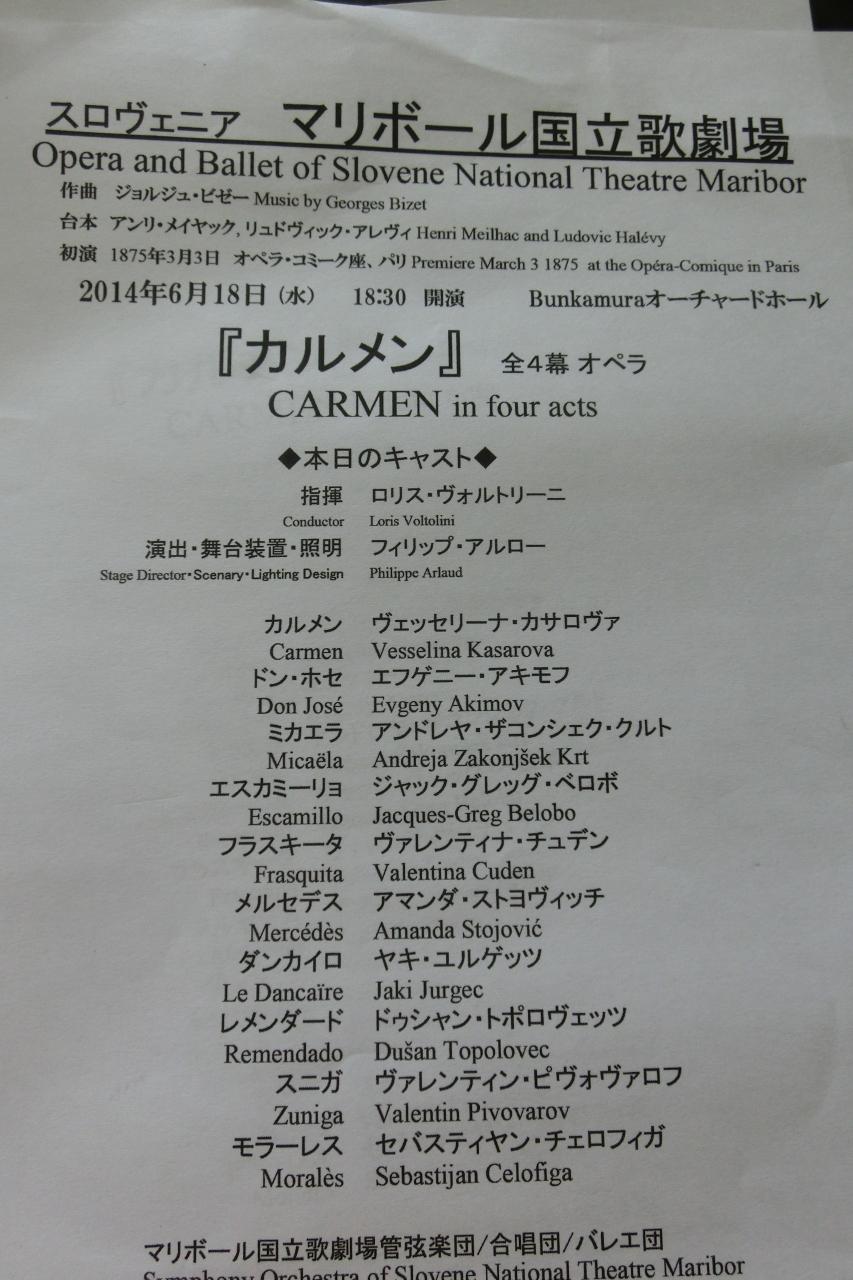 スロヴェニア　マリボール国立歌劇場
Opera and Ballet of Slovene National Theatre Maribor
作曲　ジョルジュ・ビゼー Music by Georges Bizet
台本　アンリ・メイヤック, リュドヴィック・アレヴィ Henri Meilhac and Ludovic Halévy
初演　1875年3月3日　オペラ・コミーク座、パリ Premiere March 3 1875 at the Opéra-Comique in Paris
2014年6月18日（水）　18:30 開演　Bunkamuraオーチャードホール
『カルメン』　全４幕 オペラ
CARMEN in four acts
◆本日のキャスト◆
指揮　ロリス・ヴォルトリーニ
Conductor　Loris Voltolini
演出・舞台装置・照明　フィリップ・アルロー
Stage Director・Scenary・Lighting Design　Philippe Arlaud
カルメン　ヴェッセリーナ・カサロヴァ
Carmen　Vesselina Kasarova
ドン・ホセ　エフゲニー・アキモフ
Don José　Evgeny Akimov
ミカエラ　アンドレヤ・ザコンシェク・クルト
Micaëla　Andreja Zakonjšek Krt
エスカミーリョ　ジャック・グレッグ・ベロボ
Escamillo　Jacques-Greg Belobo
フラスキータ　ヴァレンティナ・チュデン
Frasquita　Valentina Cuden
メルセデス　アマンダ・ストヨヴィッチ
Mercédès　Amanda Stojović
ダンカイロ　ヤキ・ユルゲッツ
Le Dancaïre　Jaki Jurgec
レメンダード　ドゥシャン・トポロヴェッツ
Remendado　Dušan Topolovec
スニガ　ヴァレンティン・ピヴォヴァロフ
Zuniga　Valentin Pivovarov
モラーレス　セバスティヤン・チェロフィガ
Moralès　Sebastijan Celofiga
マリボール国立歌劇場管弦楽団/合唱団/バレエ団
Symphony Orchestra of Slovene National Theatre Maribor